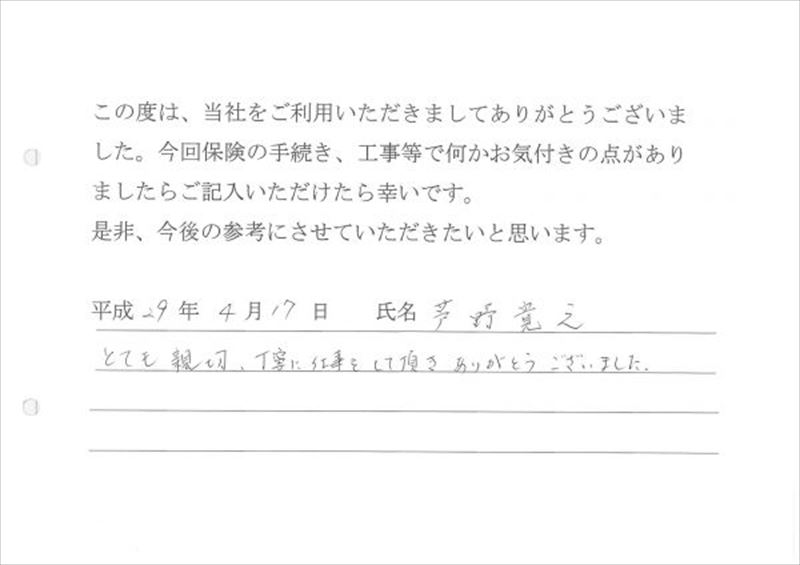 この度は、当社をご利用いただきましてありがとうございま
した。今回保険の手続き、工事等で何かお気付きの点があり
ましたらご記入いただけたら幸いです。
是非、今後の参考にさせていただきたいと思います。
平成29年4月17日 氏名 芦野覚え
とても親切、丁寧に仕事をして頂きありがとうございました。